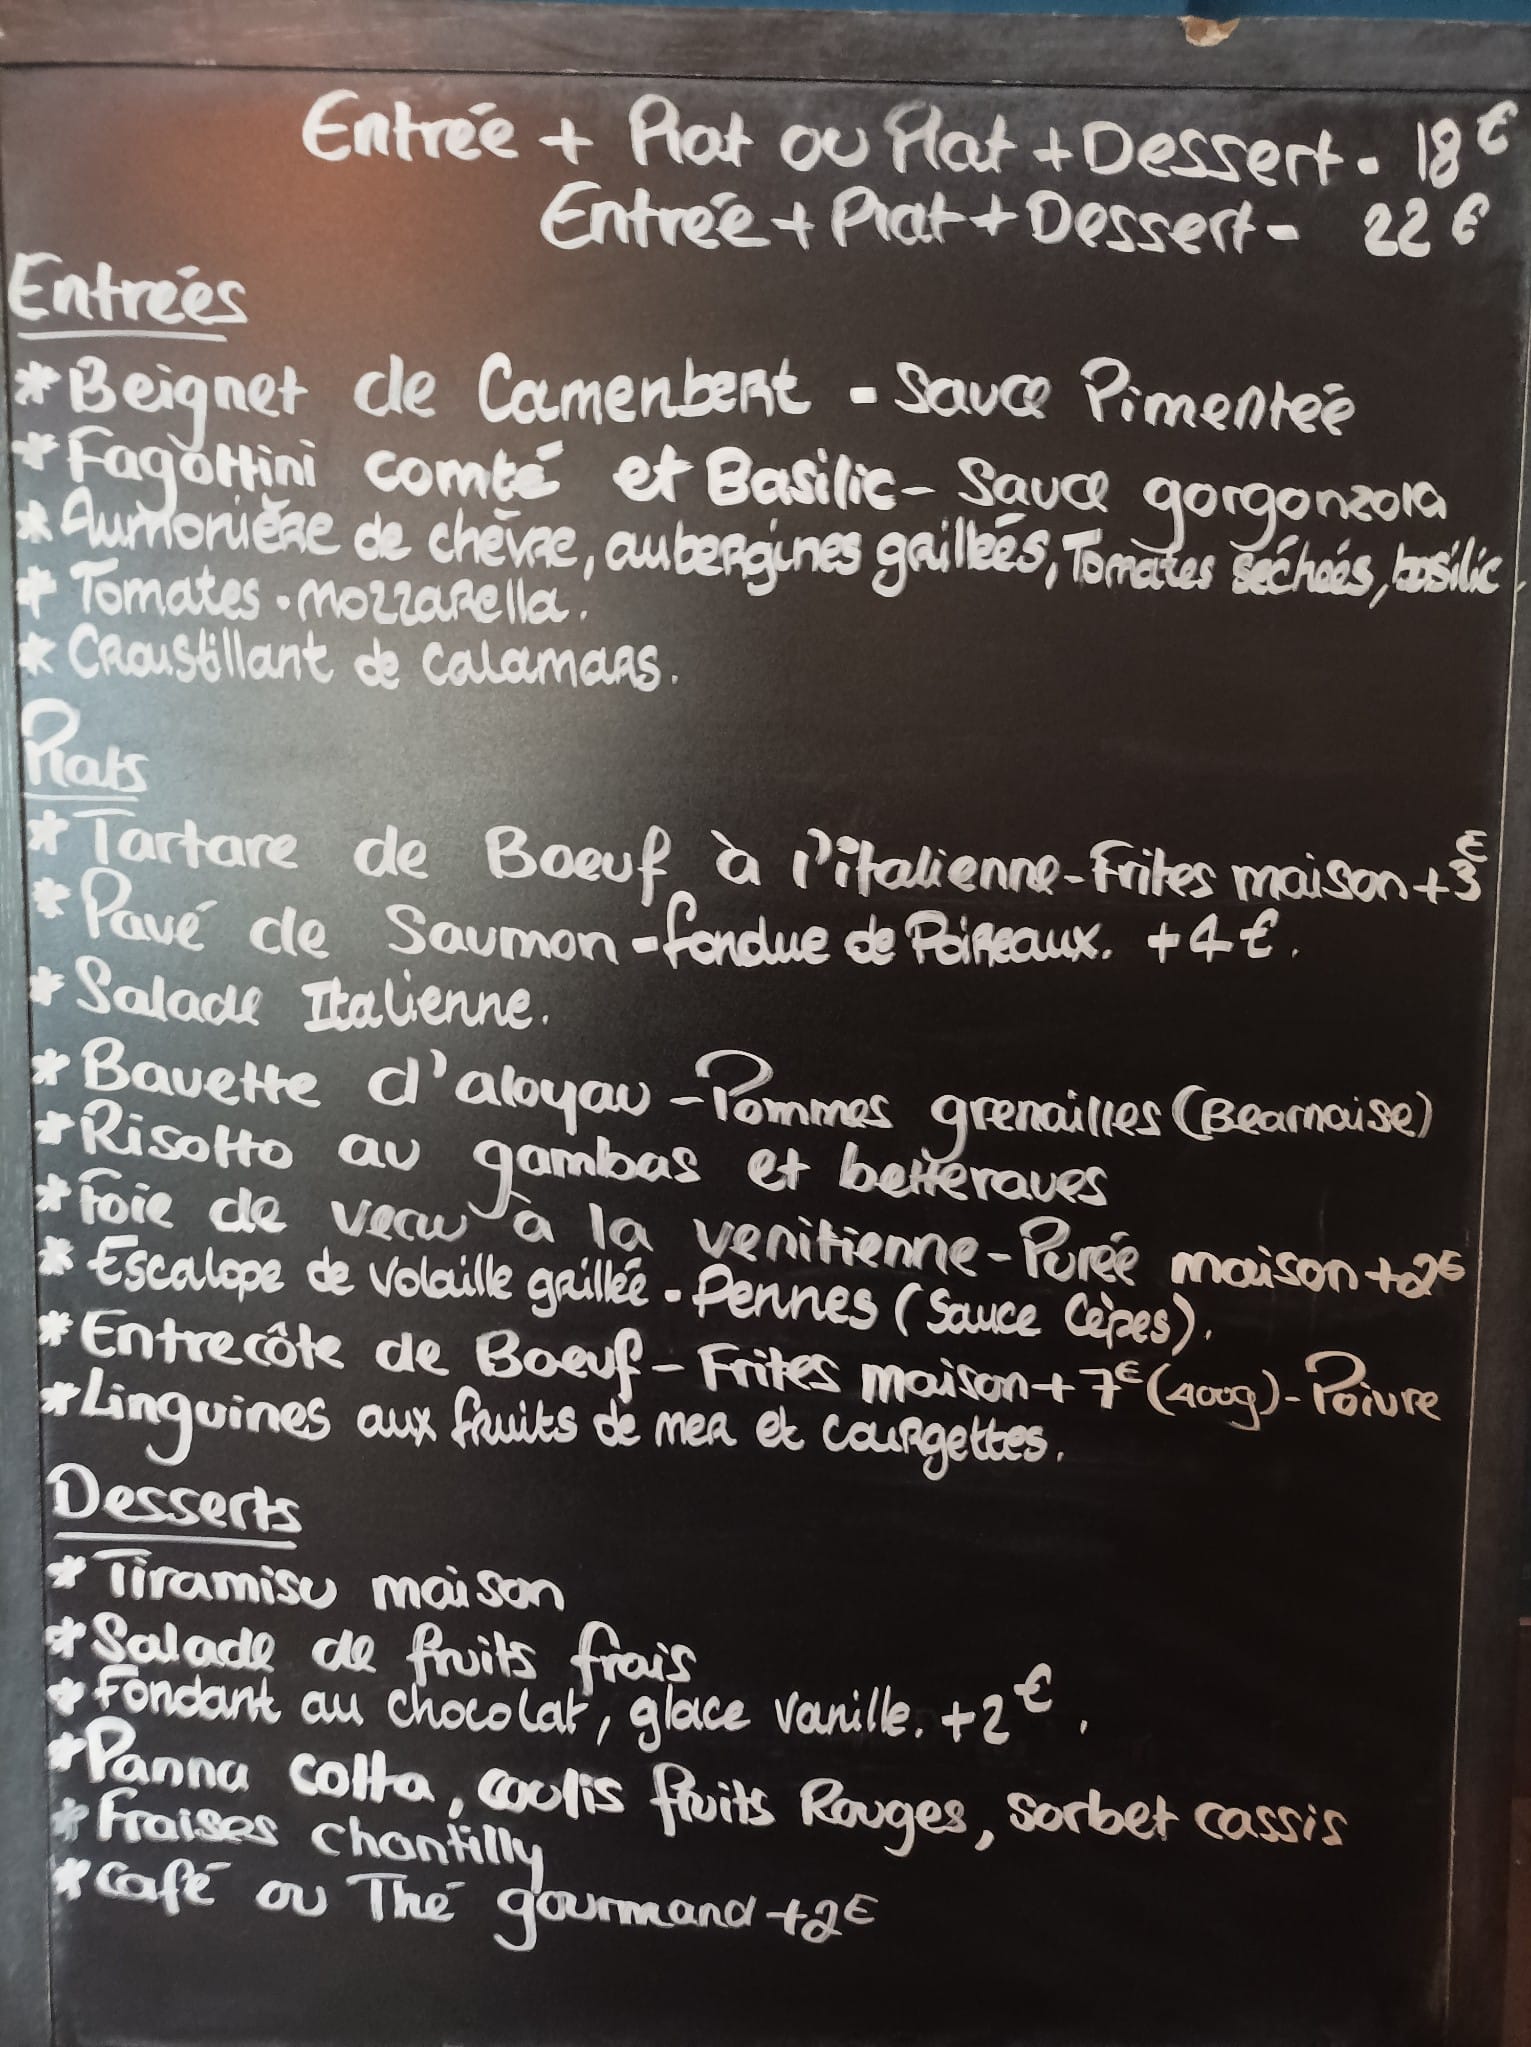 Entrée + Plat ou Plat + Dessert - 18€
Entrée + Plat + Dessert - 22€
Entrées
* Beignet de Camenbert - Sauce Pimenteé
* Fagottini comté et Basilic - Sauce gorgonzola
* Aumonière de chèvre, aubergines grilleés, Tomates séchées, basilic.
* Tomates - mozzarella.
* Croustillant de calamars.
Plats
* Tartare de Boeuf à l'italienne - Frites maison +3€
* Pavé de Saumon - fondue de Poireaux. +4€.
* Salade Italienne.
* Bavette d'aloyau - Pommes grenailles (Bearnaise)
* Risotto au gambas et betteraves
* Foie de veau à la venitienne - Purée maison +2€
* Escalope de Volaille grillée - Pennes (Sauce Cèpes).
* Entrecôte de Boeuf - Frites maison +7€ (400g) - Poivre
* Linguines aux fruits de mer et courgettes.
Desserts
* Tiramisu maison
* Salade de fruits frais
* Fondant au chocolat, glace vanille. +2€.
* Panna cotta, coulis fruits Rouges, sorbet cassis
* Fraises chantilly
* Café ou Thé gourmand +2€